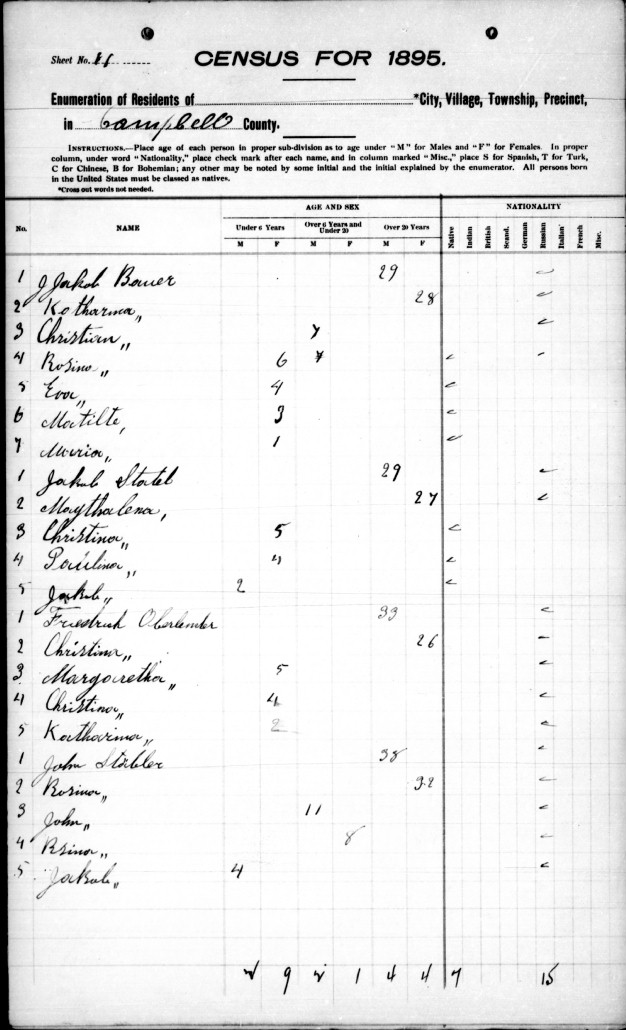 Sheet No.
CENSUS FOR 1895.
Enumeration of Residents of *City, Village, Township, Precinct,
in Campbell County.
INSTRUCTIONS.—Place age of each person in proper sub-division as to age under "M" for Males and "F" for Females. In proper
column, under word "Nationality," place check mark after each name, and in column marked "Misc.," place S for Spanish, T for Turk,
C for Chinese, B for Bohemian; any other may be noted by some initial and the initial explained by the enumerator. All persons born
in the United States must be classed as natives.
*Cross out words not needed.
AGE AND SEX NATIONALITY
No. NAME Under 6 Years Over 6 Years and Under 20 Over 20 Years Native Indian British Scand. German Russian Italian French Misc.
M F M F M F
1 Jakob Bauer 29 ✓
2 Katharina „ 28 ✓
3 Christian „ 7 ✓
4 Rosina „ 6 ✓
5 Eva „ 4 ✓
6 Matilte, 3 ✓
7 Maria „ 1 ✓
1 Jakob 29 ✓
2 Maythalena, 27 ✓
3 Christina „ 5 ✓
4 Paulina „ 4 ✓
5 Jakob „ 2 ✓
1 Friedrich Oberlender 33 ✓
2 Christina „ 26 ✓
3 Margaretha „ 5 ✓
4 Christina „ 4 ✓
5 Katharina „ 2 ✓
1 John Stabler 38 ✓
2 Rosina „ 32 ✓
3 John „ 11 ✓
4 Rsina „ 8 ✓
5 Jakob „ 4 ✓
2 9 2 1 4 4 7 15